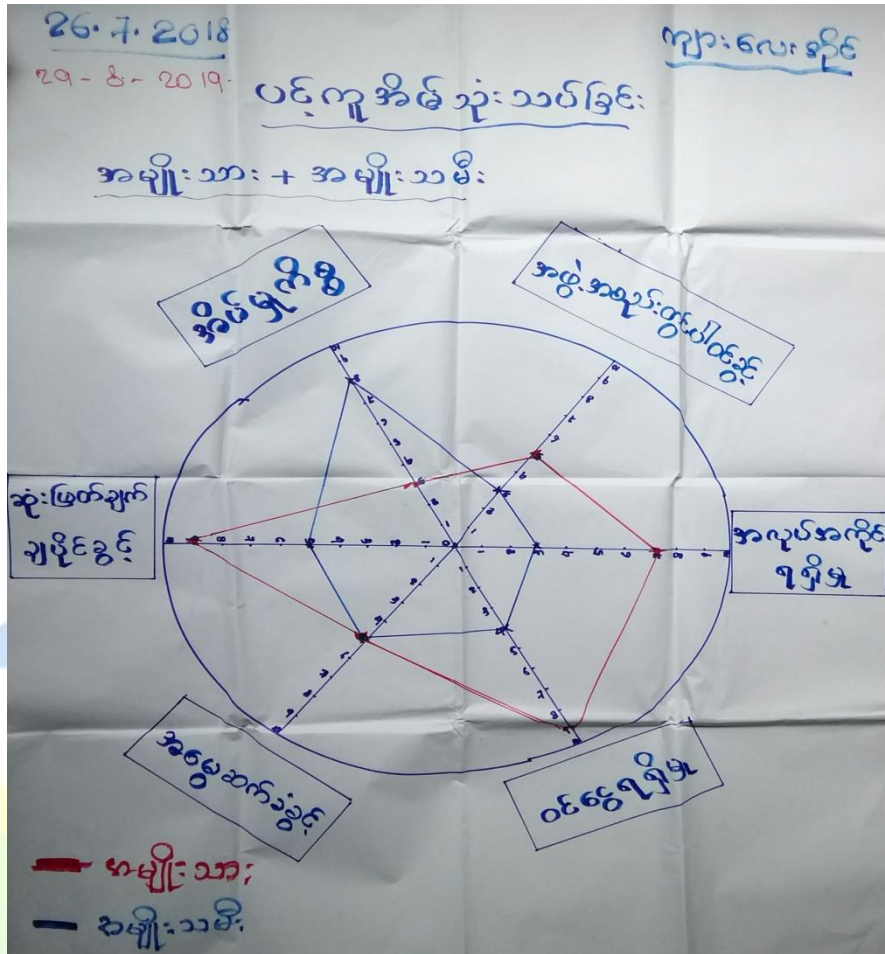 26.7.2018
29-8-2019
ကျားလေးဆိုင်
ပင့်ကူအိမ်သုံးသပ်ခြင်း
အမျိုးသား + အမျိုးသမီး
အိမ်မှုကိစ္စ
အဖွဲ့အစည်းတွင်ပါဝင်ခွင့်
ဆုံးဖြတ်ချက်
ချပိုင်ခွင့်
အလုပ်အကိုင်
ရရှိမှု
အမွေဆက်ခံခွင့်
ဝင်ငွေရရှိမှု
အမျိုးသား
အမျိုးသမီး